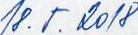 18. 5. 2018